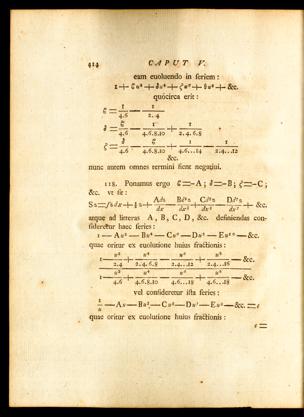 414 CAPUT V.
eam euoluendo in seriem :
1+ℭu²+𝔡u⁴+ζu⁶+θu⁸+ &c.
quocirca erit :
ℭ = 1/4.6 − 1/2.4
𝔡 = ℭ/4.6 − 1/4.6.8.10 + 1/2.4.6.8
ζ = 𝔡/4.6 − ℭ/4.6.8.10 + 1/4.6...14 − 1/2.4...12
&c.
nunc autem omnes termini fient negatiui.
118. Ponamus ergo ℭ=-A ; 𝔡=-B; ζ=-C;
&c. vt sit :
Sz=∫zdx+½z+Adz/dx−Bd³z/dx³+Cd⁵z/dx⁵−Dd⁷z/dx⁷+ &c.
atque ad litteras A, B, C, D, &c. definiendas con-
sideretur haec series :
1 − Au² − Bu⁴ − Cu⁶ − Du⁸ − Eu¹⁰ − &c.
quae oritur ex euolutione huius fractionis :
1 − u²/2.4 + u⁴/2.4.6.8 − u⁶/2.4...12 + u⁸/2.4...16 − &c.
1 − u²/4.6 + u⁴/4.6.8.10 − u⁶/4.6...14 + u⁸/4.6...18 − &c.
vel consideretur ista series :
1/u − Au − Bu³ − Cu⁵ − Du⁷ − Eu⁹ − &c. = s
quae oritur ex euolutione huius fractionis :
s =